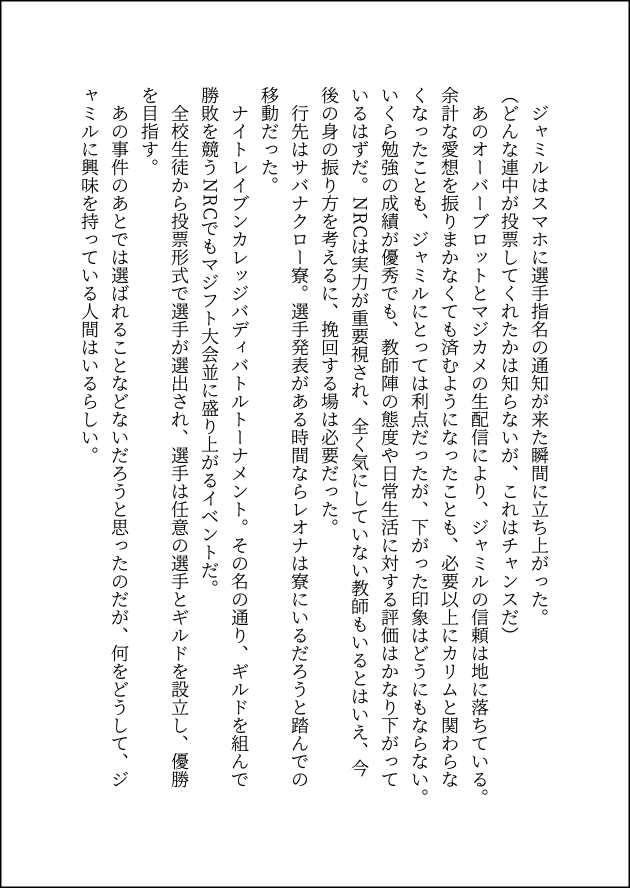 ジャミルはスマホに選手指名の通知が来た瞬間に立ち上がった。
(どんな連中が投票してくれたかは知らないが、これはチャンスだ)
あのオーバーブロットとマジカメの生配信により、ジャミルの信頼は地に落ちている。
余計な愛想を振りまかなくても済むようになったことも、必要以上にカリムと関わらな
くなったことも、ジャミルにとっては利点だったが、下がった印象はどうにもならない。
いくら勉強の成績が優秀でも、教師陣の態度や日常生活に対する評価はかなり下がって
いるはずだ。NRCは実力が重要視され、全く気にしていない教師もいるとはいえ、今
後の身の振り方を考えるに、挽回する場は必要だった。
行先はサバナクロー寮。選手発表がある時間ならレオナは寮にいるだろうと踏んでの
移動だった。
ナイトレイブンカレッジバディバトルトーナメント。その名の通り、ギルドを組んで
勝敗を競うNRCでもマジフト大会並に盛り上がるイベントだ。
全校生徒から投票形式で選手が選出され、選手は任意の選手とギルドを設立し、優勝
を目指す。
あの事件のあとでは選ばれることなどないだろうと思ったのだが、何をどうして、ジ
ャミルに興味を持っている人間はいるらしい。